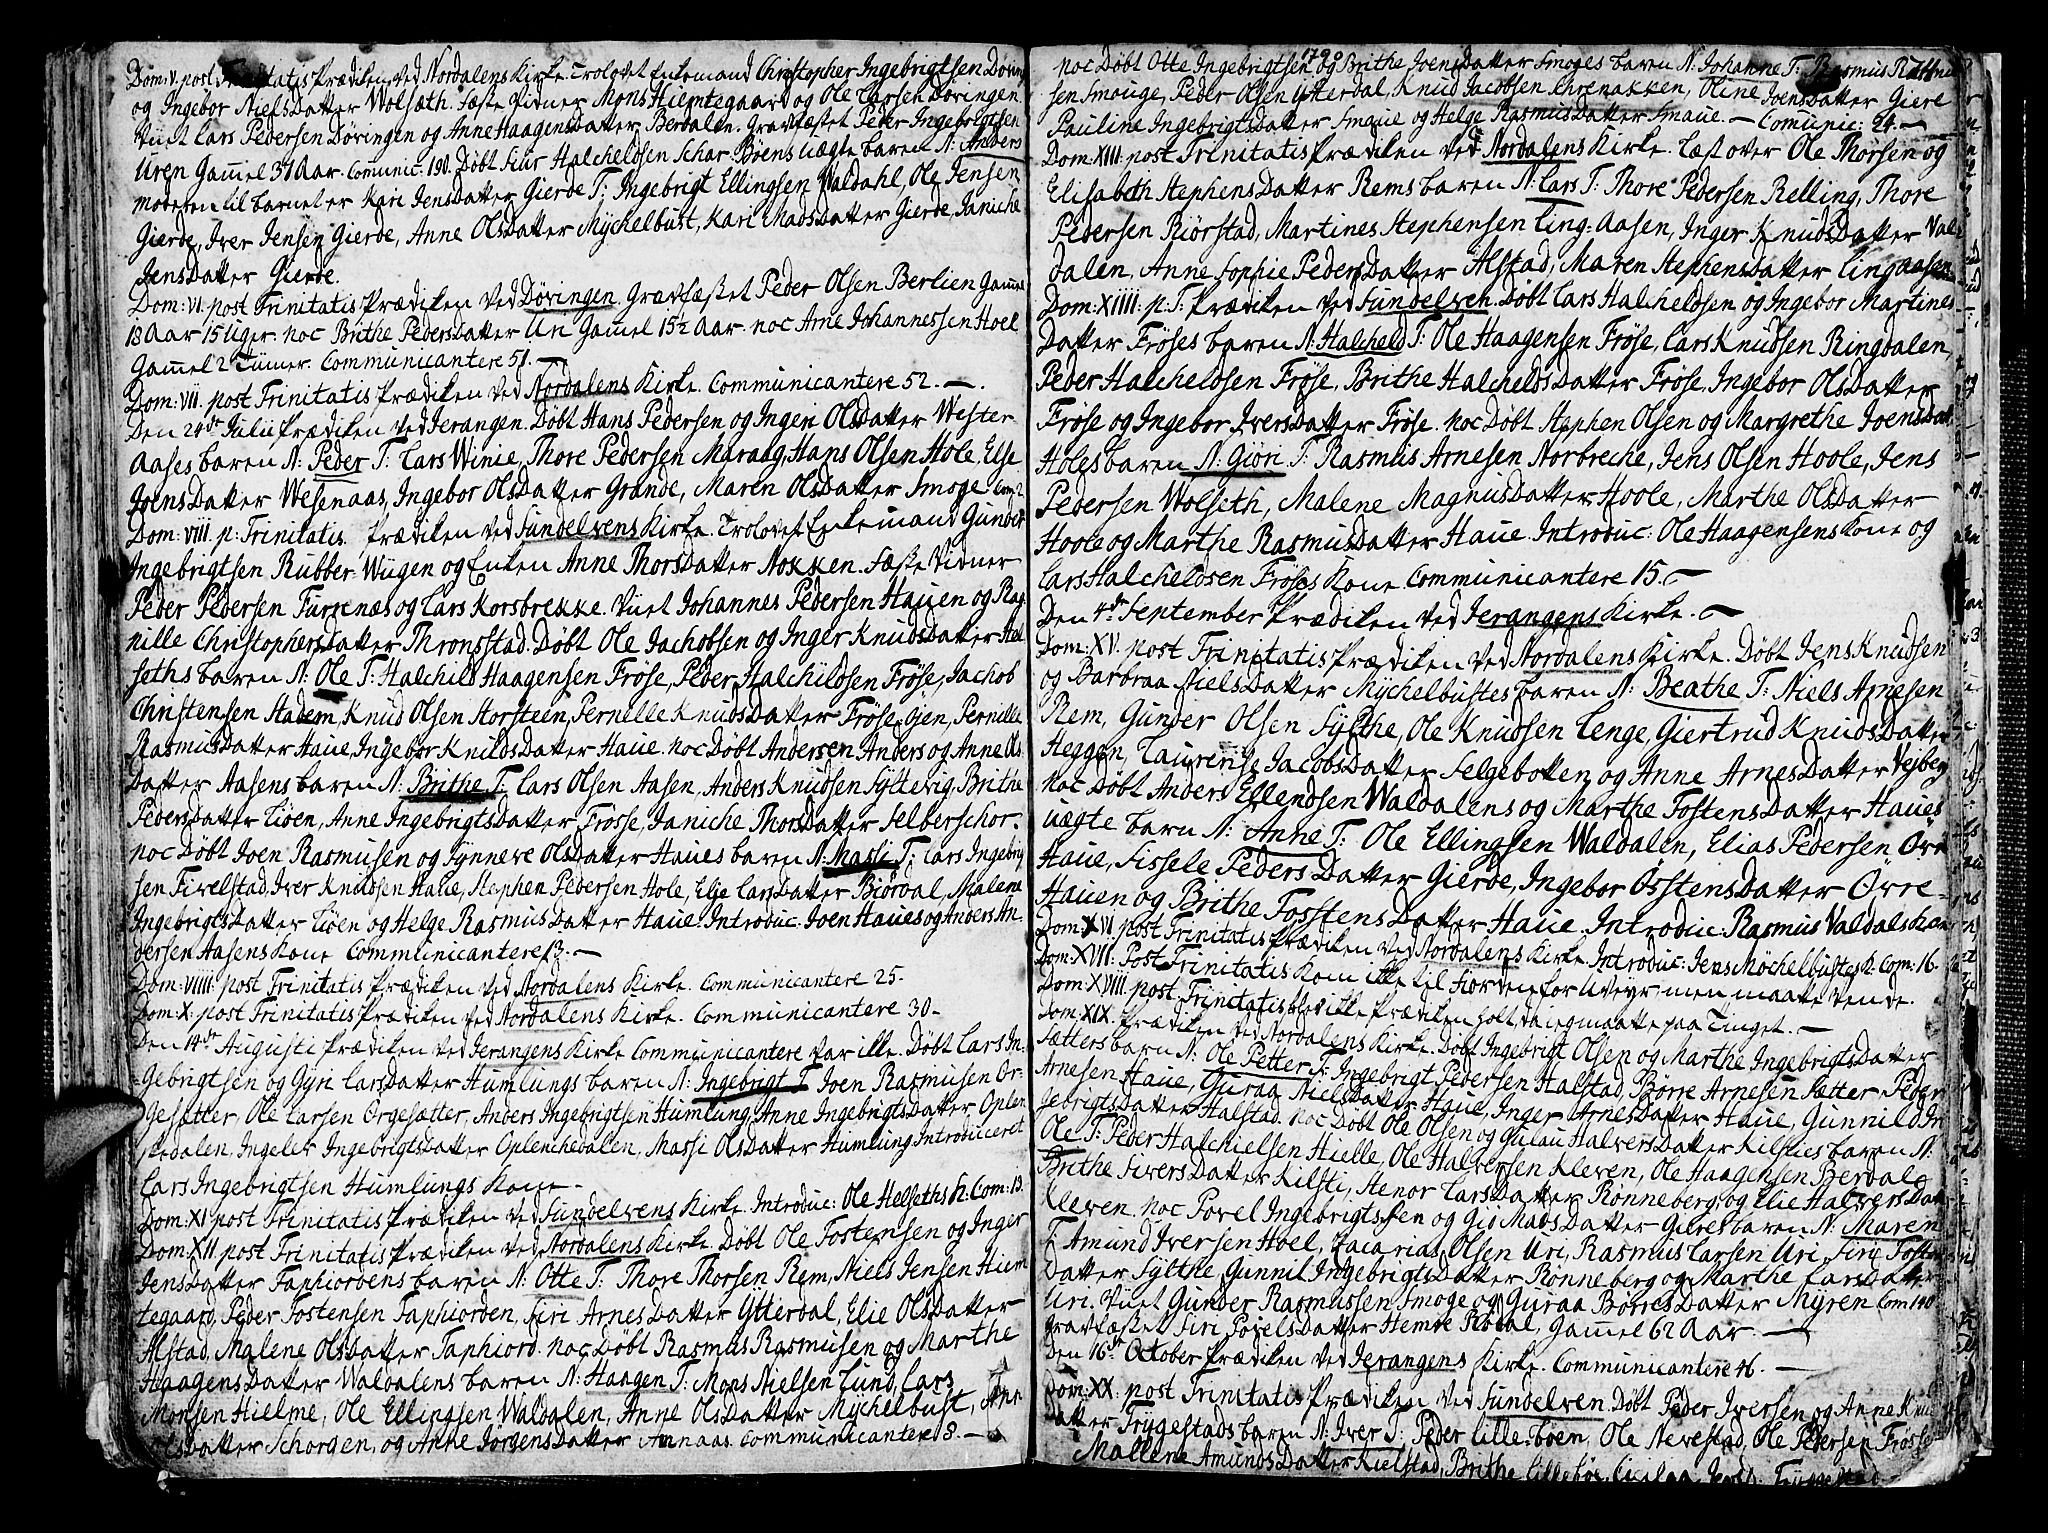 Dom: V. post Trinitatis Prædiken ved Nordalens Kirke. Trolovet Enkemand Christopher Ingebrigtsen Døvring
og Ingebor NielsDatter Wolsæth. Fæste Vidner Mons Hiemtegaard og Ole Larsen Døvingen
Viiet Lars Pedersen Døvingen og Anne HaagensDatter Berdalen. Gravfæstet Peder Ingebrigtsen
Uren Gamel 37 Aar. Comunic: 190. Døbt Siur Halcheldsen Schar Bøens uægte baren N: Anders
moderen til barnet er Kari JensDatter Gierde T: Ingebrigt Ellingsen Waldahl, Ole Jensen
Gierde, Iver Jensen Gierde, Anne OlsDatter Mychelbust, Kari MadsDatter Gierde, Janiche
JensDatter Gierde.
Dom: VI. post Trinitatis Prædiken ved Døvingen. Gravfæstet Peder Olsen Berlien Gamel
13 Aar 15 Uger. noc Brithe PedersDatter Uri Gamel 15½ Aar. noc Arne Johannessen Hoel
Gammel 2 Timer. Communicantere 51.
Dom: VII. post Trinitatis Prædiken ved Nordalens Kirke. Communicantere 52.
Den 24de Julii Prædiken ved Ierangen. Døbt Hans Pedersen og Ingeri OlsDatter Wester
Aases baren N: Peder T: Lars Winie, Thore Pedersen Maraag, Hans Olsen Hole, Else
JoensDatter Wesenaas, Ingebor OlsDatter Grande, Maren OlsDatter Smoge Com: 2
Dom: VIII. p: Trinitatis. Prædiken ved Sundelvens Kirke. Trolovet Enkemand Gunder
Ingebrigtsen Rubber-Wiigen og Enken Anne ThorsDatter Nokken. Fæste Vidner
Peder Pedersen Furrenæs og Lars Korsbrekke. Viiet Johannes Pedersen Hauen og Rag
nille ChristophersDatter Thronsstad. Døbt Ole Jachobsen og Inger KnudsDatter Hel
seths baren N: Ole T: Halchild Haagensen Frøse, Peder Halchildsen Frøse, Jachob
Christensen Hadem, Knud Olsen Storsteen, Pernelle KnudsDatter Frøse Gien, Pernille
RasmusDatter Haue, Ingebor KnudsDatter Haue. noc Døbt Andersen Anders og Anne Ols
Datter Aasens baren N: Brithe T: Lars Olsen Aasen, Anders Knudsen Syltevig, Brithe
PedersDatter Liøen, Anne IngebrigtsDatter Frøsse, Janiche ThorsDatter Selberschor.
noc Døbt Joen Rasmusen og Synneve OlsDatter Haues baren N: Massi T: Lars Ingebrig
sen Fivelstad, Iver Knudsen Haue, Stephen Pedersen Hole, Elie LarsDatter Biørdal, Malene
IngebrigtsDatter Liøen og Helge RasmusDatter Haue. Introduc: Joen Haues og Anders An-
dersen Aasens Kone Communicantere 13.
Dom: VIIII. post Trinitatis Prædiken ved Nordalens Kirke. Communicantere 25.
Dom: X. post Trinitatis Prædiken ved Nordalens Kirke. Communicantere 30.
Den 14de Augusti Prædiken ved Ierangens Kirke Communicantere var ille. Døbt Lars In-
gebrigtsen og Gyri LarsDatter Humlungs baren N: Ingebrigt T: Joen Rasmusen Or-
gesætter, Ole Larsen Orgesætter, Anders Ingebrigtsen Humlung, Anne IngebrigtsDatter Oplen
skedalen, Ingeler IngebrigtsDatter Oplenchedalen, Massi OlsDatter Humlung Introduceret
Lars Ingebrigtsen Humlungs Kone.
Dom: XI post Trinitatis Prædiken ved Sundelvens Kirke. Introduc: Ole Helseths K. Com: 13.
Dom: XII. post Trinitatis Prædiken ved Nordalens Kirke. Døbt Ole Fostensen og Inger
JensDatter Taphiordens baren N: Otte T: Thore Thorsen Rem, Niels Jensen Hiem
tegaard, Peder Tostensen Taphiorden, Siri ArnesDatter Ytterdal, Elie OlsDatter
Alstad, Malene OlsDatter Taphiord. noc Døbt Rasmus Rasmusen og Marthe
HaagensDatter Waldalens baren N: Haagen T: Mons Nielsen Lund, Lars
Monsen Hielme, Ole Ellingsen Waldalen, Anne OlsDatter Mychelbust, Ane
OlsDatter Schorgen, og Anne JørgensDatter Annaas. Communicantere 8.
1790
noc Døbt Otte Ingebrigtsen og Brithe JoensDatter Smoges baren N: Johanne T: Rasmus
sen Smouge, Peder Olsen Ytterdal, Knud Jacobsen Ehrenakken, Oline JoensDatter Giere
Pauline IngebrigtsDatter Smaue og Helge RasmusDatter Smaue. Comunic: 24.
Dom: XIII. post Trinitatis Prædiken ved Nordalens Kirke. Læst over Ole Thorsen og
Elisabeth StephensDatter Rems baren N: Lars T: Thore Pedersen Relling, Thore
Pedersen Riørstad, Martines Stephensen Ling-Aasen, Inger KnudsDatter Val
dalen, Anne Sophie PedersDatter Alstad, Maren StephensDatter Lingaasen
Dom: XIIII. p. T: Prædiken ved Sundelven. Døbt Lars Halcheldsen og Ingebor Martines
Datter Frøses baren N: Halcheld T: Ole Haagensen Frøse, Lars Knudsen Ringdalen,
Peder Halcheldsen Frøse, Brithe HalcheldsDatter Frøse, Ingebor OlsDatter
Frøse og Ingebor IversDatter Frøse. noc Døbt Stephen Olsen og Margrethe JoensDat
Holes baren N: Giøri T: Rasmus Arnesen Norbreche, Jens Olsen Hoole, Jens
Pedersen Wolseth, Malene MagnusDatter Hoole, Marthe OlsDatter
Hoole og Marthe RasmusDatter Haue. Introduc: Ole Haagensens Kone og
Lars Halcheldsen Frøses Kone. Communicantere 15.
Den 4de September Prædiken ved Ierangens Kirke.
Dom: XV. post Trinitatis Prædiken ved Nordalens Kirke. Døbt Jens Knudsen
og Barbraa NielsDatter Mychelbustes baren N: Beathe T: Niels Arnesen
Rem, Gunder Olsen Sylthe, Ole Knudsen Lenge, Giertrud KnudsDatter
Heggen, Laurense JacobsDatter Selgeboken og Anne ArnesDatter Vejberg
noc Døbt Anders Ellendsen Waldalens og Marthe TostensDatter Haues
uægte barn N: Anne T: Ole Ellingsen Waldalen, Elias Pedersen Øvr
Haue, Sissele PedersDatter Gierde, Ingebor ØsstensDatter Øvre-
Hauen og Brithe TosstensDatter Haue. Introduc: Rasmus Valdals Kone
Dom: XVI. post Trinitatis Prædiken ved Nordalens Kirke. Introduc: Jens Møchelbustes K: Com: 16.
Dom: XVII. Post Trinitatis Kom ikke til Fiorden for Uveyr, men maatte vende.
Dom: XVIII. post Trinitatis blev ikke Prædiken holt, da ieg maatte paa Tinget.
Dom: XIX. Prædiken ved Nordalens Kirke. Døbt Ingebrigt Olsen og Marthe IngebrigtsDatter
Sætters barn N: Ole Petter T: Ingebrigt Pedersen Halstad, Børre Arnesen Sætter, Peder
Arnesen Haue, Guraa NielsDatter Haue, Inger ArnesDatter Haue, Gunnild In
gebrigtsDatter Halstad. noc Døbt Ole Olsen og Gulau HalversDatter Kilsties baren N:
Ole T: Peder Halchielsen Hielle, Ole Halversen Kleven, Ole Haagensen Berdal
Brithe SiversDatter Kilsti, Stenor LarsDatter Rønneberg, og Elie HalversDatter
Kleven. noc Povel Ingebrigtssen og Giø MadsDatter Gieres baren N: Maren
T: Amund Iversen Hoel, Zacarias Olsen Uri, Rasmus Larsen Uri, Siri Tosten
Datter Sylthe, Gunnil IngebrigtsDatter Rønneberg og Marthe LarsDatter
Uri. Viiet Gunder Rasmussen Smoge og Guraa BørresDatter Myren Com 140
Gravfæstet Siri PovelsDatter Hemre Rødal, Gamel 62 Aar.
Den 16de October Prædiken ved Ierangens Kirke. Communicantere 46.
Dom: XX. post Trinitatis Prædiken ved Sundelven. Døbt Peder Iversen og Anne Knu
Datter Trygestads baren N: Iver T: Peder Lille-bøen, Ole Nevestad, Ole Pedersen Frøsse
Mallene AmundsDatter Kielstad, Brithe